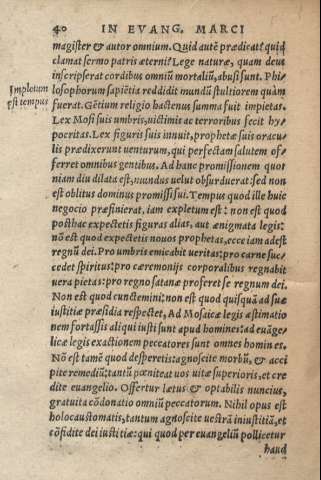 40 IN EVANG. MARCI
magister & autor omnium. Quid autē prædicat? quid
clamat sermo patris æterni? Lege naturæ, quam deus
inscripserat cordibus omniū mortaliū, abusi sunt. Phi
losophorum sapiētia reddidit mundū stultiorem quàm
Impletum
est tempus
fuerat. Gētium religio hactenus summa fuit impietas.
Lex Mosi suis umbris, uictimis ac terroribus fecit hy
pocritas. Lex figuris suis innuit, prophetæ suis oracu
lis prædixerunt uenturum, qui perfectam salutem of
ferret omnibus gentibus. Ad hanc promissionem quo
niam diu dilata est, mundus uelut obsurduerat: sed non
est oblitus dominus promissi sui. Tempus quod ille huic
negocio præfinierat, iam expletum est: non est quod
posthac expectetis figuras alias, aut ænigmata legis:
nō est quod expectetis nouos prophetas, ecce iam adest
regnū dei. Pro umbris emicabit ueritas: pro carne suc-
cedet spiritus: pro cæremonijs corporalibus regnabit
uera pietas: pro regno satanæ proferet se regnum dei.
Non est quod cunctemini: non est quod quisquā ad suæ
iustitiæ præsidia respectet, Ad Mosaicæ legis æstimatio
nem fortassis aliqui iusti sunt apud homines: ad euāge-
licæ legis exactionem peccatores sunt omnes homines.
Nō est tamē quod desperetis: agnoscite morbū, & acci
pite remediū: tantū pœniteat uos uitæ superioris, et cre
dite euangelio. Offertur lætus & optabilis nuncius,
gratuita cōdonatio omniū peccatorum. Nihil opus est
holocaustomatis, tantum agnoscite uestrā iniustitiā, et
cōfidite dei iustitiæ: qui quod per euangeliū pollicetur
haud